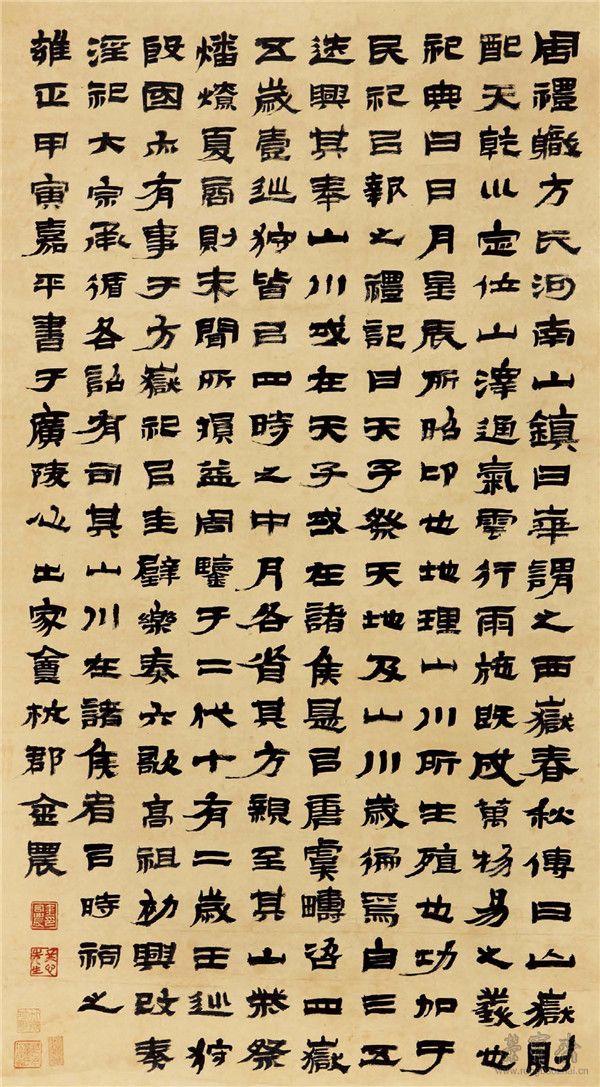 周禮職方氏河南山鎮曰崋謂之西嶽春秋傳曰山嶽則
配天乾川定位山澤通氣雲行雨施既成萬物易之義也
祀典曰日月星辰所昭卬也地理山川所生殖也功加于
民祀㠯報之禮記曰天子祭天地及山川歲徧焉自三五
迭興其奉山川或在天子或在諸侯是㠯唐虞疇咨四嶽
五歲壹巡狩皆㠯四時之中月各省其方親至其山柴祭
燔燎夏商則未聞所損益周鑒于二代十有二歲王巡狩
殷國亦有事于方嶽祀㠯圭璧樂奏六歌高祖初興改秦
淫祀大宗承循各詔有司其山川在諸侯者㠯時祠之
雍正甲寅嘉平書于廣陵心出家盦杭郡金農
榮寶齋
www.rongbaozhai.cn